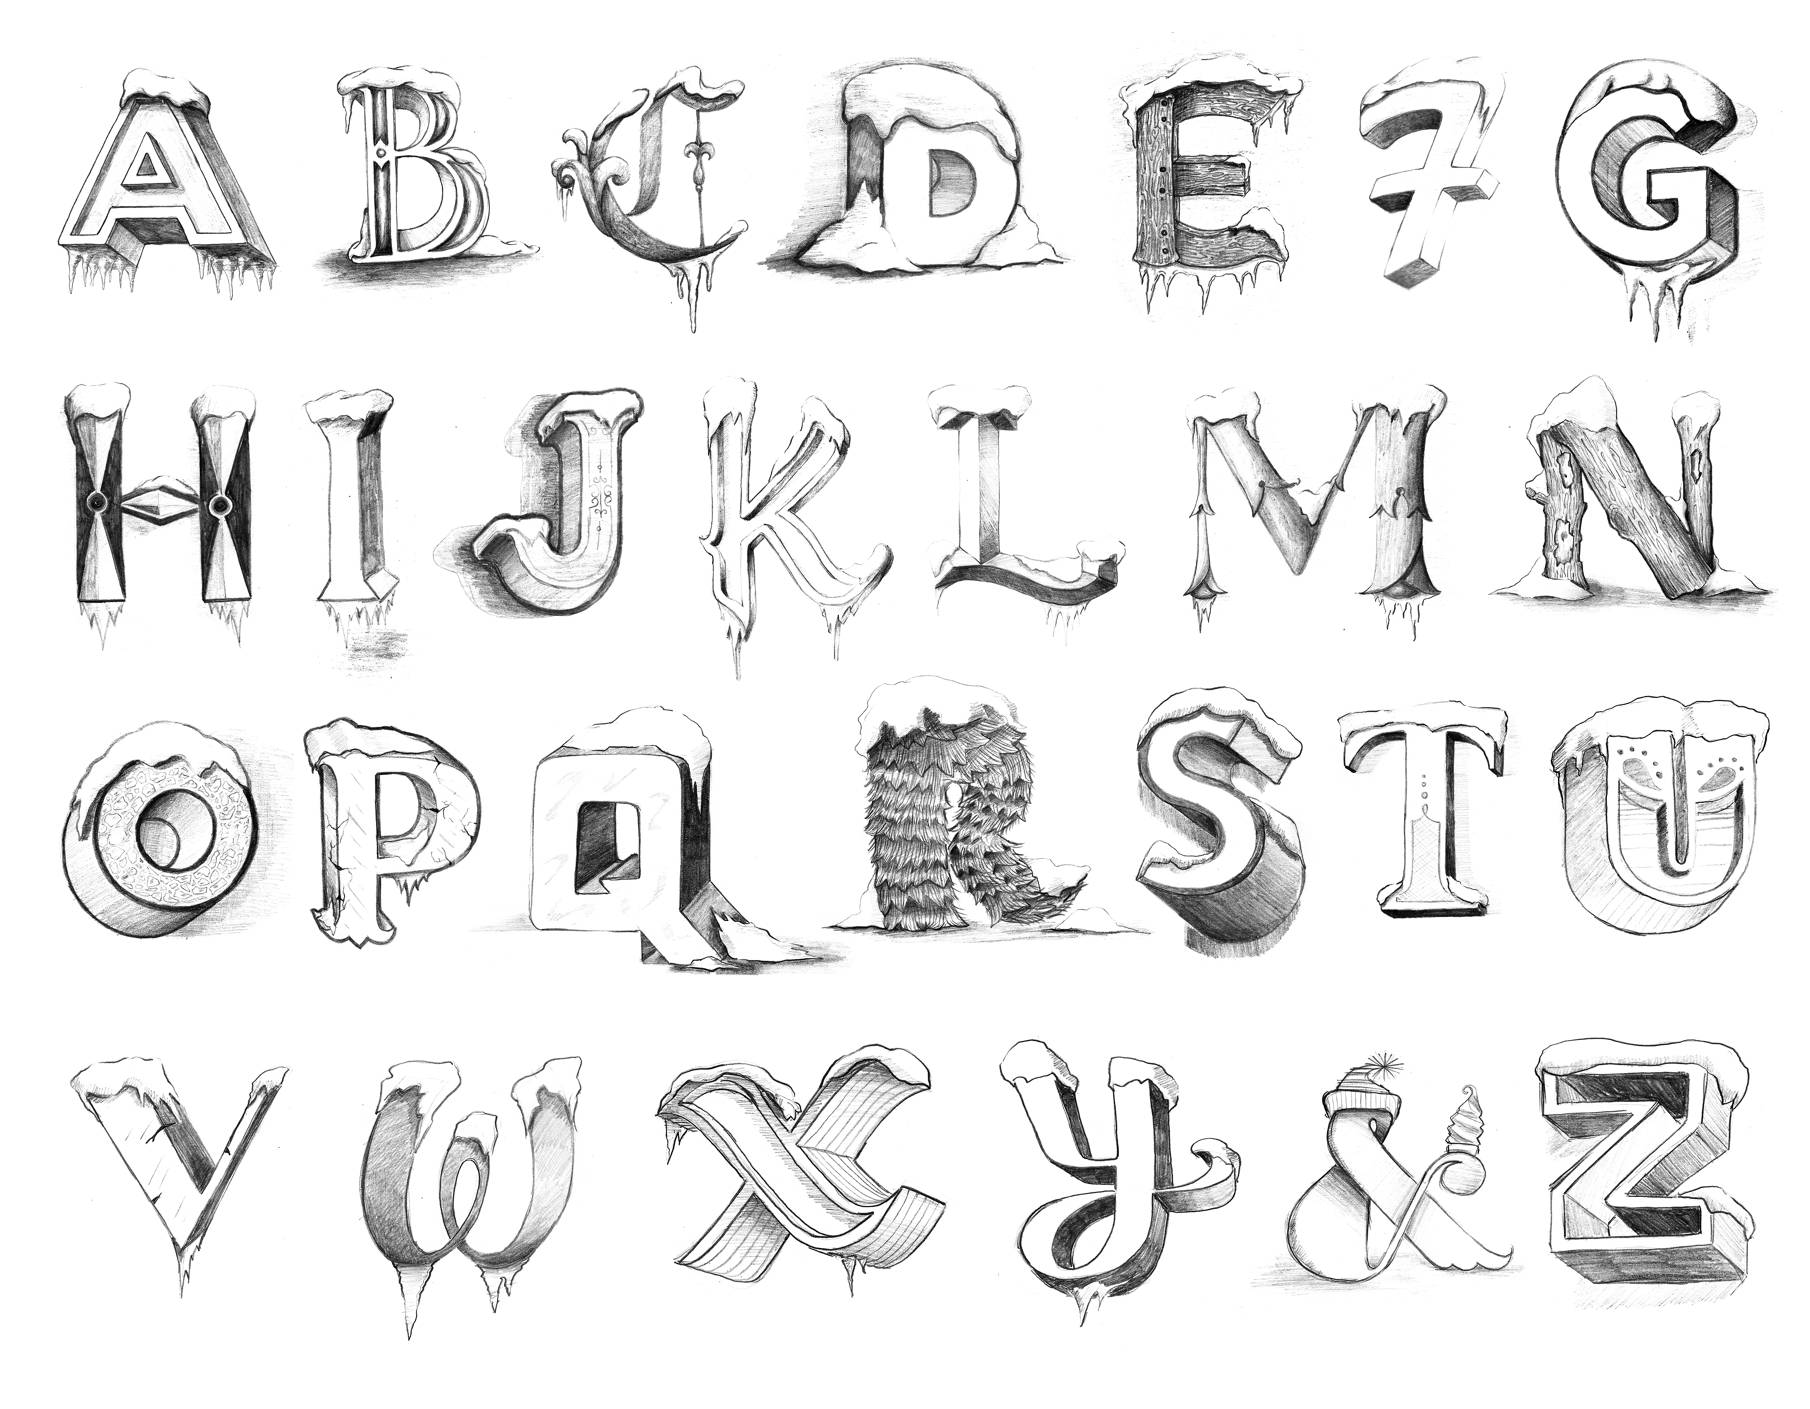 A B C D E F G
H I J K L M N
O P Q R S T U
V W X Y & Z